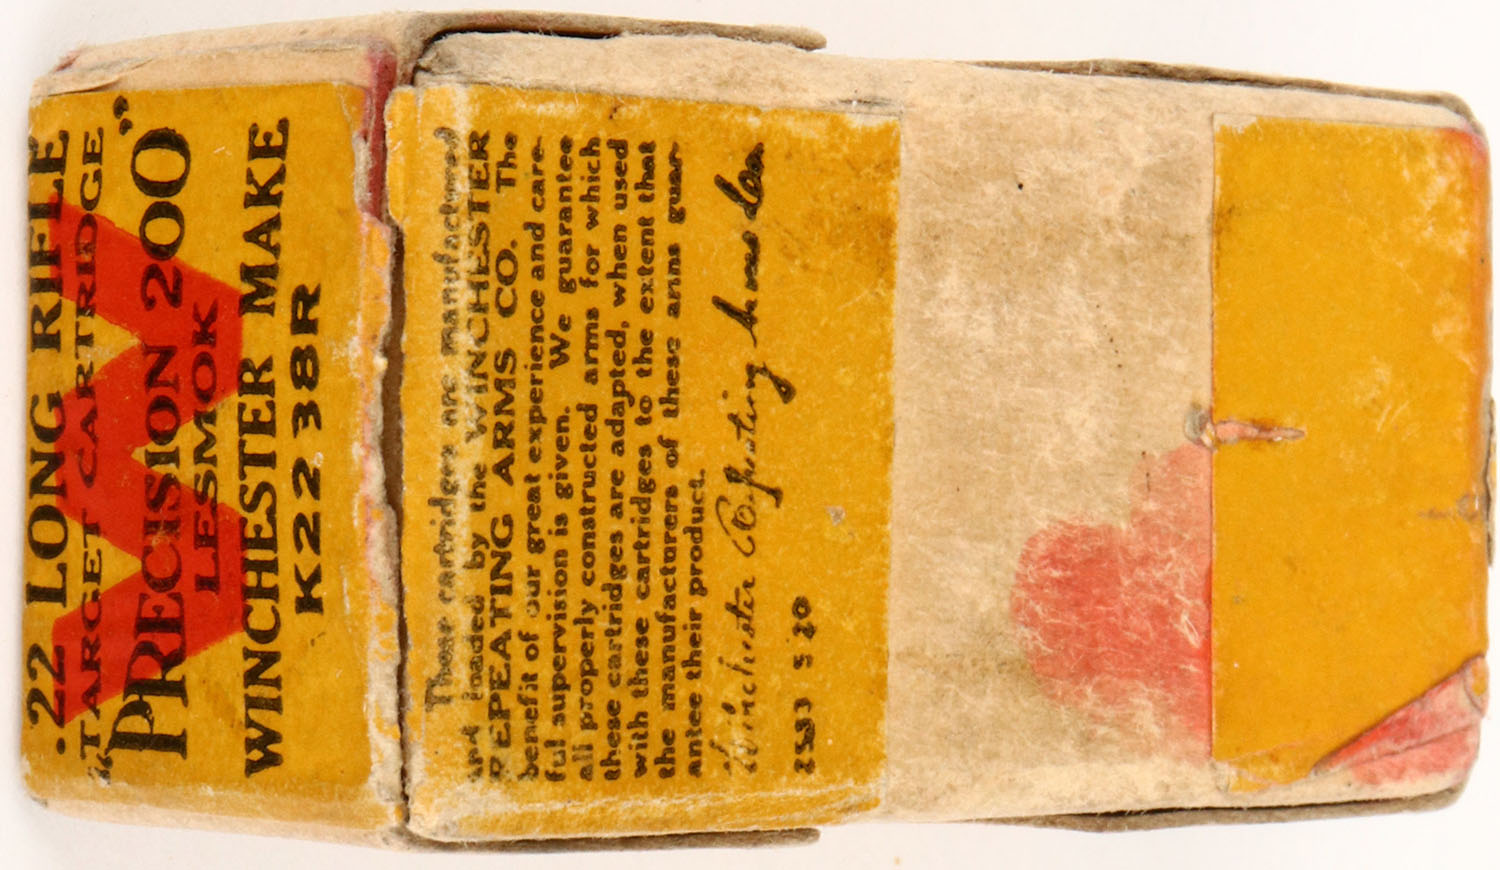 .22 LONG RIFLE
TARGET CARTRIDGE
"PRECISION 200"
LESMOK
WINCHESTER MAKE
K2238R
These cartridges are manufactured
and loaded by the WINCHESTER
REPEATING ARMS CO. The
benefit of our great experience and care-
ful supervision is given. We guarantee
all properly constructed arms for which
these cartridges are adapted, when used
with these cartridges to the extent that
the manufacturers of these arms guar-
antee their product.
Winchester Repeating Arms